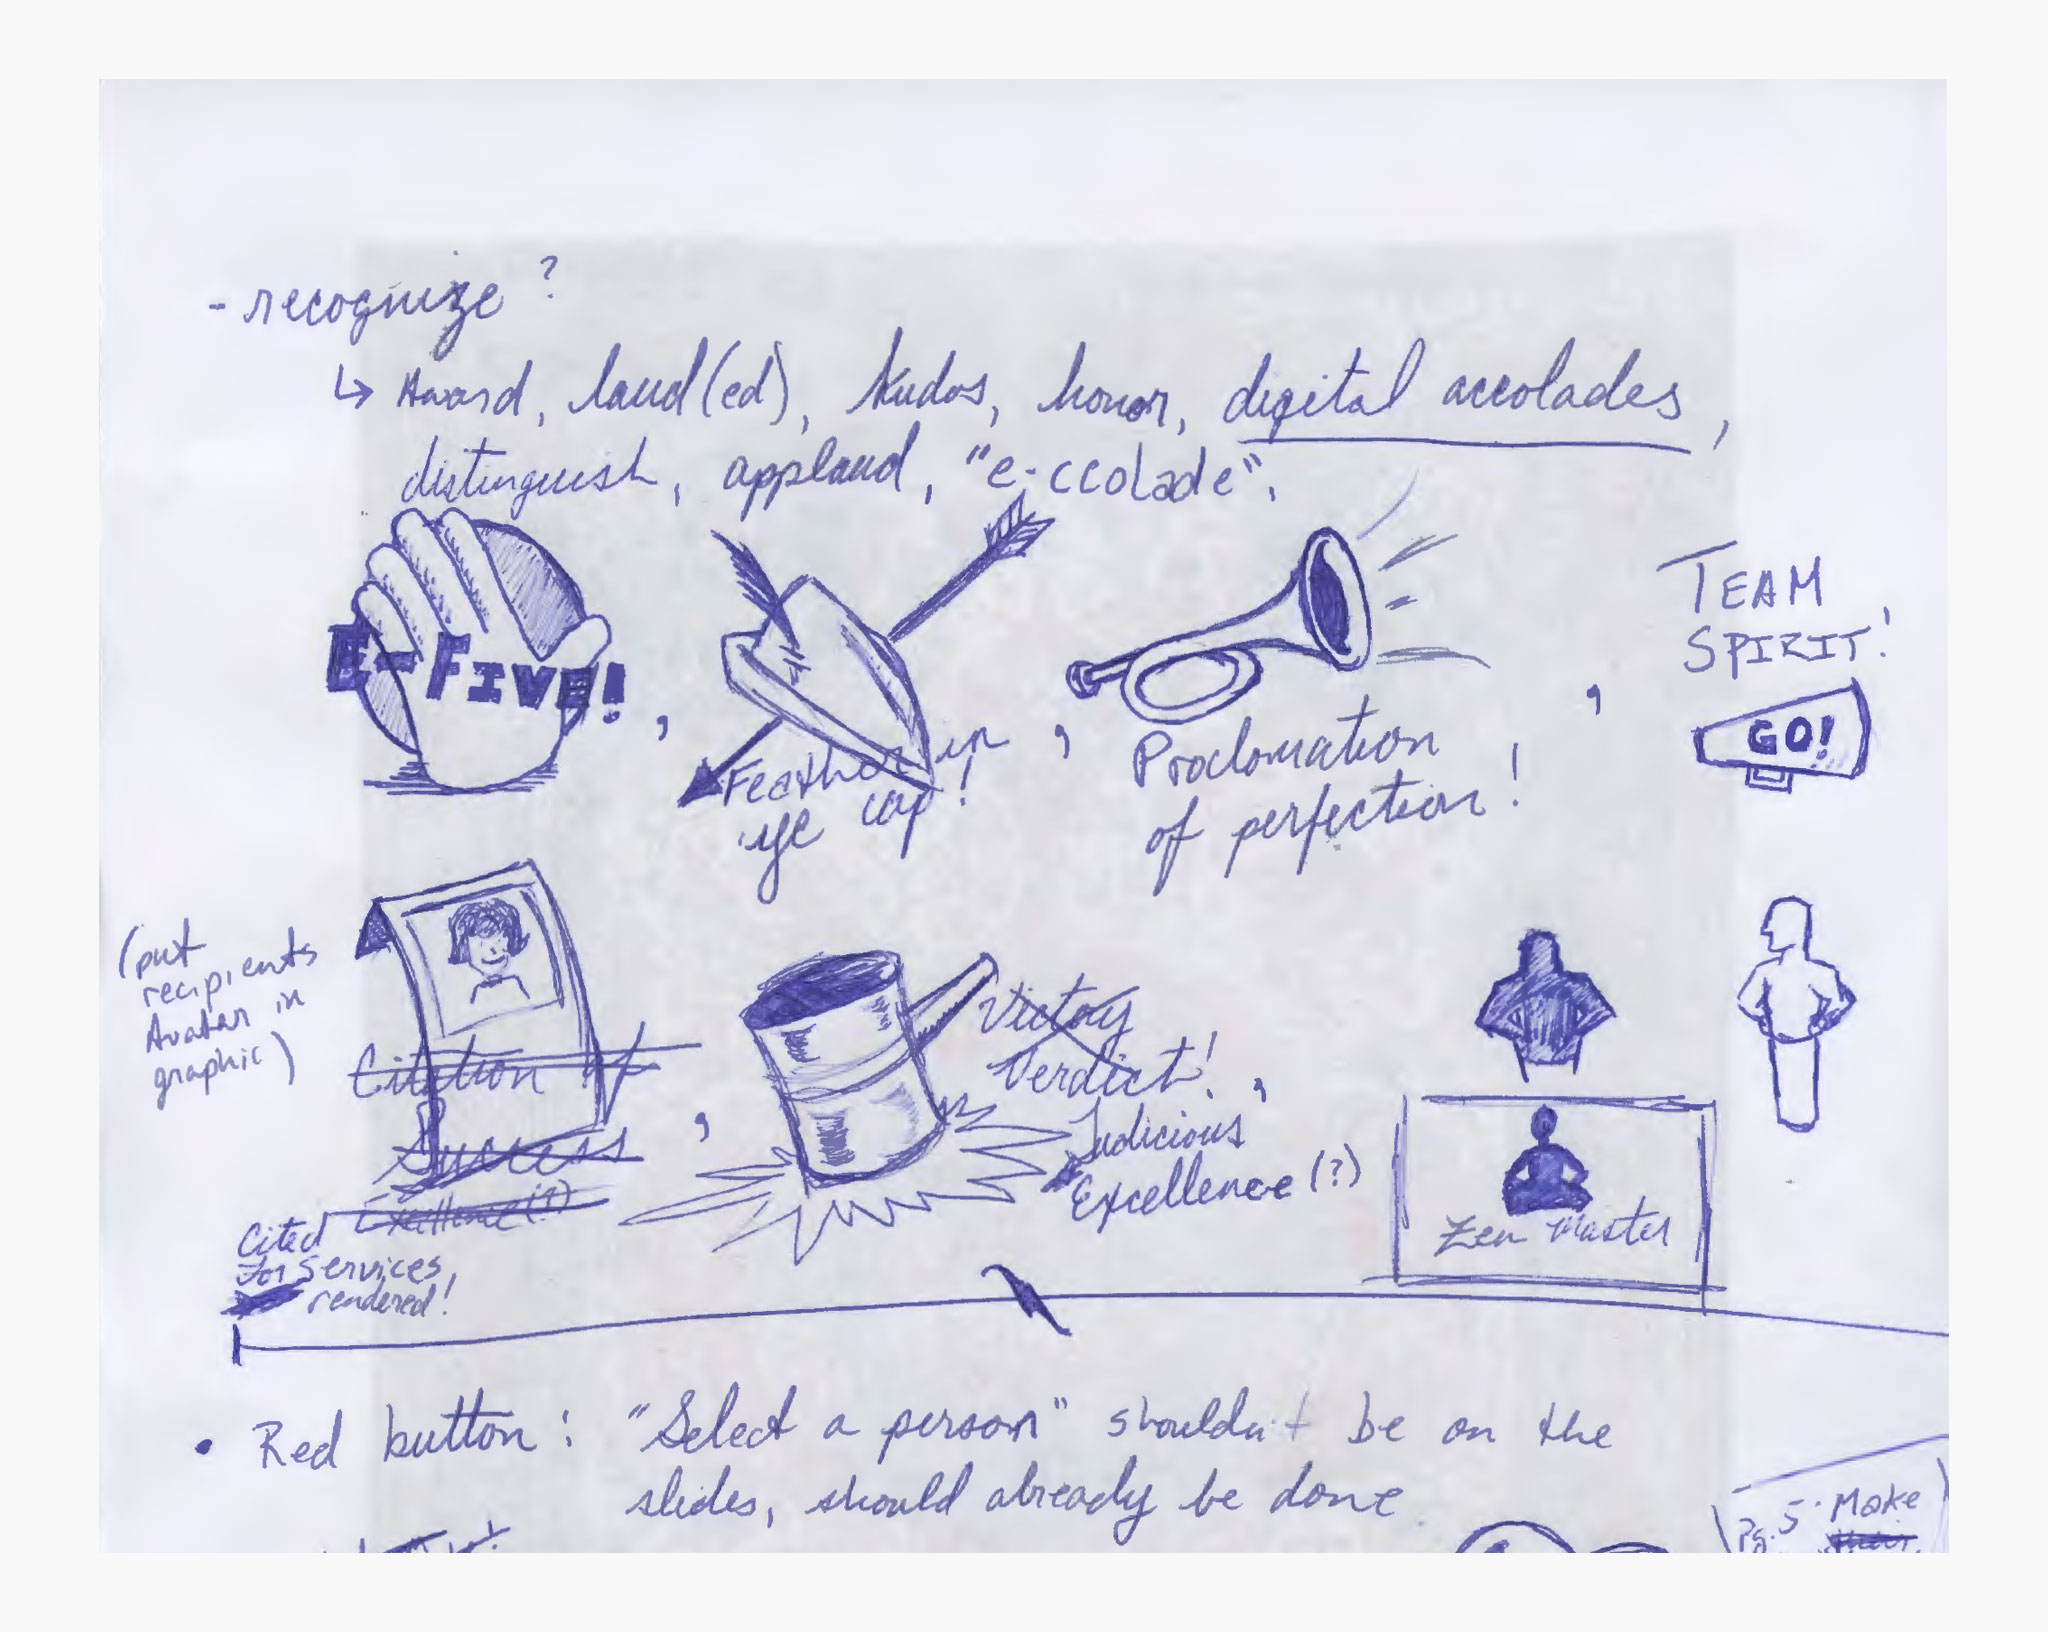 - recognize ?
↳ Award, laud(ed), kudos, honor, digital accolades,
distinguish, applaud, "e-ccolade".
E-FIVE!,
Feather in
ye cap!,
Proclomation
of perfection!,
TEAM
SPIRIT!
GO!
(put
recipients
Avatar in
graphic)
Citation of
Success
Excellence(?)
Cited
For services
rendered!,
Victory
Verdict!,
Judicious
Excellence (?)
Zen Master
• Red button: "Select a person" shouldn't be on the
slides, should already be done
Pg. 5 - Make